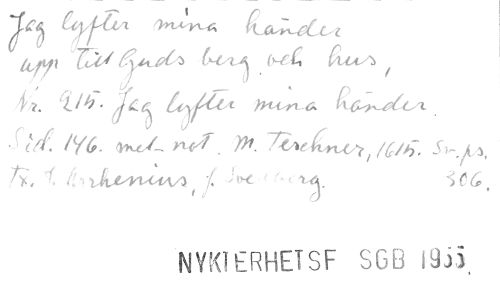 Jag lyfter mina händer
upp till Guds berg och hus,
Nr. 215. Jag lyfter mina händer.
Sid. 146. mel-not. M. Teschner, 1615. Sv. ps.
Tx. J. Arrhenius, J. Svedberg. 306.
NYKTERHETSF SGB 1955.